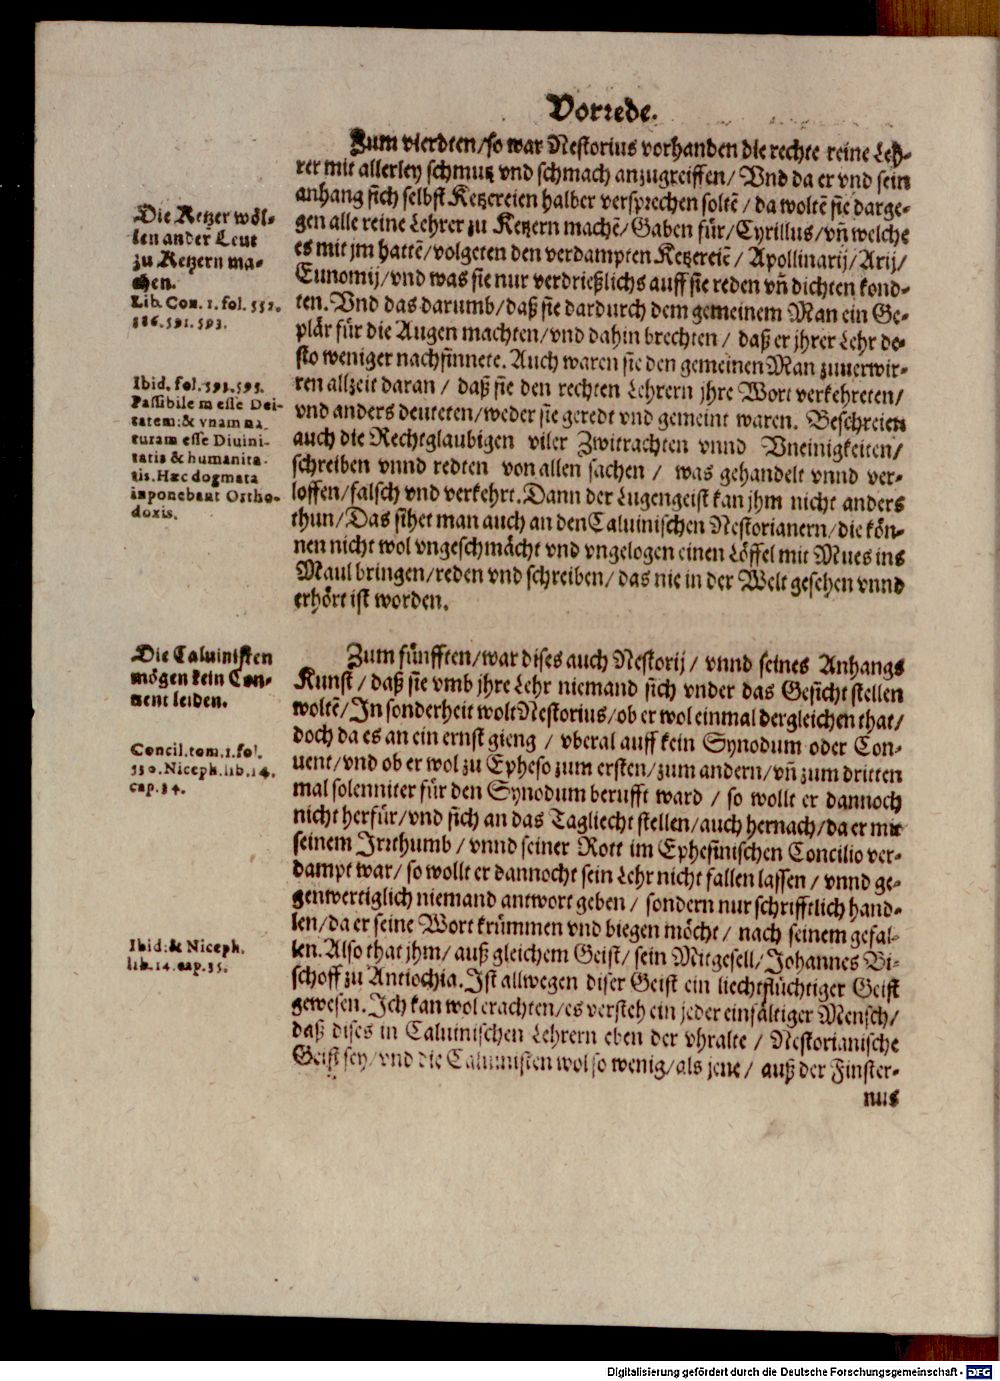 Vorrede.
Zum vierdten/so war Nestorius vorhanden die rechte reine Leh-
rer mit allerley schmutz vnd schmach anzugreiffen/ Vnd da er vnd sein
anhang sich selbst Ketzereien halber versprechen soltē/ da woltē sie darge-
gen alle reine Lehrer zu Ketzern machē/Gaben für/Cyrillus/vñ welche
es mit jm hattē/volgeten den verdampten Ketzereiē/ Apollinarij/Arij/
Eunomij/vnd was sie nur verdrießlichs auff sie reden vñ dichten kond-
ten. Vnd das darumb/daß sie dardurch dem gemeinem Man ein Ge-
plär für die Augen machten/vnd dahin brechten/ daß er jhrer Lehr de-
sto weniger nachsinnete. Auch waren sie den gemeinen Man zuuerwir-
ren allzeit daran/ daß sie den rechten Lehrern jhre Wort verkehreten/
vnd anders deuteten/weder sie geredt vnd gemeint waren. Beschreien
auch die Rechtglaubigen viler Zwitrachten vnnd Vneinigkeiten/
schreiben vnnd redten von allen sachen/ was gehandelt vnnd ver-
loffen/falsch vnd verkehrt. Dann der Lugengeist kan jhm nicht anders
thun/Das sihet man auch an den Caluinischen Nestorianern/die kön-
nen nicht wol vngeschmächt vnd vngelogen einen Löffel mit Mues ins
Maul bringen/reden vnd schreiben/das nie in der Welt gesehen vnnd
erhört ist worden.
Die Ketzer wöl-
len ander Leut
zu Ketzern ma-
chen.
Lib. Con. 1. fol. 552.
586.591.593.
Ibid. fol. 593.595.
Passibilem esse Dei-
tatem: & vnam na-
turam esse Diuini-
tatis & humanita-
tis. Hæc dogmata
imponebant Ortho-
doxis.
Zum fünfften/war dises auch Nestorij/ vnnd seines Anhangs
Kunst/daß sie vmb jhre Lehr niemand sich vnder das Gesicht stellen
woltē/In sonderheit wolt Nestorius/ob er wol einmal dergleichen that/
doch da es an ein ernst gieng/ vberal auff kein Synodum oder Con-
uent/vnd ob er wol zu Epheso zum ersten/zum andern/vñ zum dritten
mal solenniter für den Synodum berufft ward/ so wollt er dannoch
nicht herfür/vnd sich an das Tagliecht stellen/auch hernach/da er mit
seinem Irrthumb/vnnd seiner Rott im Ephesinischen Concilio ver-
dampt war/so wollt er dannocht sein Lehr nicht fallen lassen/vnnd ge-
genwertiglich niemand antwort geben/ sondern nur schrifftlich hand-
len/da er seine Wort krümmen vnd biegen möcht/ nach seinem gefal-
len. Also that jhm/auß gleichem Geist/sein Mitgesell/Johannes Bi-
schoff zu Antiochia. Ist allwegen diser Geist ein liechtflüchtiger Geist
gewesen. Ich kan wol erachten/es versteh ein jeder einfältiger Mensch/
daß dises in Caluinischen Lehrern eben der vhralte/ Nestorianische
Geist sey/vnd die Caluinisten wol so wenig/als jene/ auß der Finster-
nus
Die Caluinisten
mögen kein Con-
uent leiden.
Concil. tom. 1. fol.
530. Niceph. lib. 14.
cap. 34.
Ibid: & Niceph.
lib. 14. cap. 35.
Digitalisierung gefördert durch die Deutsche Forschungsgemeinschaft - DFG